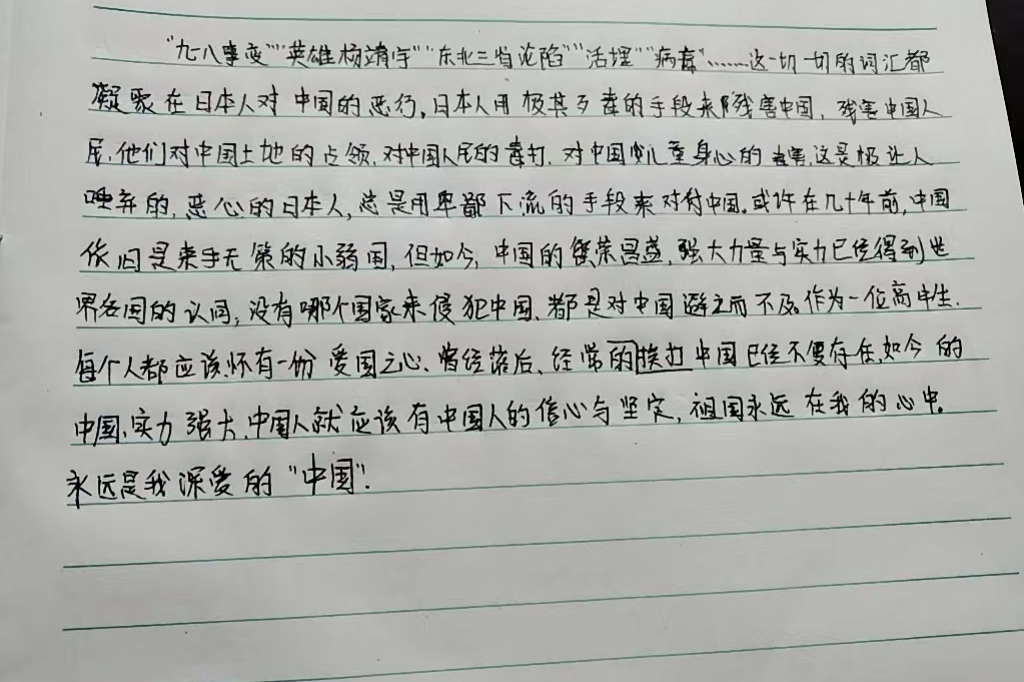 "九一八事变""英雄杨靖宇""东北三省沦陷""活埋""病毒"……这一切一切的词汇都
凝聚在日本人对中国的恶行,日本人用极其歹毒的手段来残害中国,残害中国人
民,他们对中国土地的占领,对中国人民的毒打,对中国幼儿童身心的毒害,这是极让人
唾弃的,恶心的日本人,总是用卑鄙下流的手段来对付中国。或许在几十年前,中国
依旧是束手无策的小弱国,但如今,中国的繁荣昌盛,强大力量与实力已经得到世
界各国的认同,没有哪个国家来侵犯中国,都是对中国避之而不及。作为一位高中生,
每个人都应该怀有一份爱国之心、曾经落后、经常的挨打中国已经不复存在,如今的
中国,实力强大,中国人就应该有中国人的信心与坚定,祖国永远在我的心中。
永远是我深爱的"中国"!